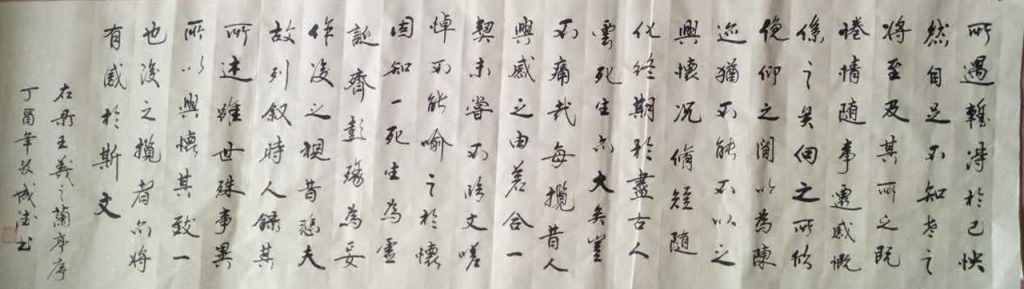 所遇暫得於己快
然自足不知老之
将至及其所之既
惓情随事遷感慨
係之矣向之所欣
俛仰之間以為陳
迹猶不能不以之
興懷况脩短随
化終期於盡古人
雲死生亦大矣豈
不痛哉每攬昔人
興感之由若合一
契未嘗不臨文嗟
悼不能喻之於懷
固知一死生為虛
誕齊彭殤為妄
作後之視昔悲夫
故列叙時人錄其
所述雖世殊事異
所以興懷其致一
也後之攬者亦将
有感於斯文
右录王羲之蘭亭序
丁酉年城书